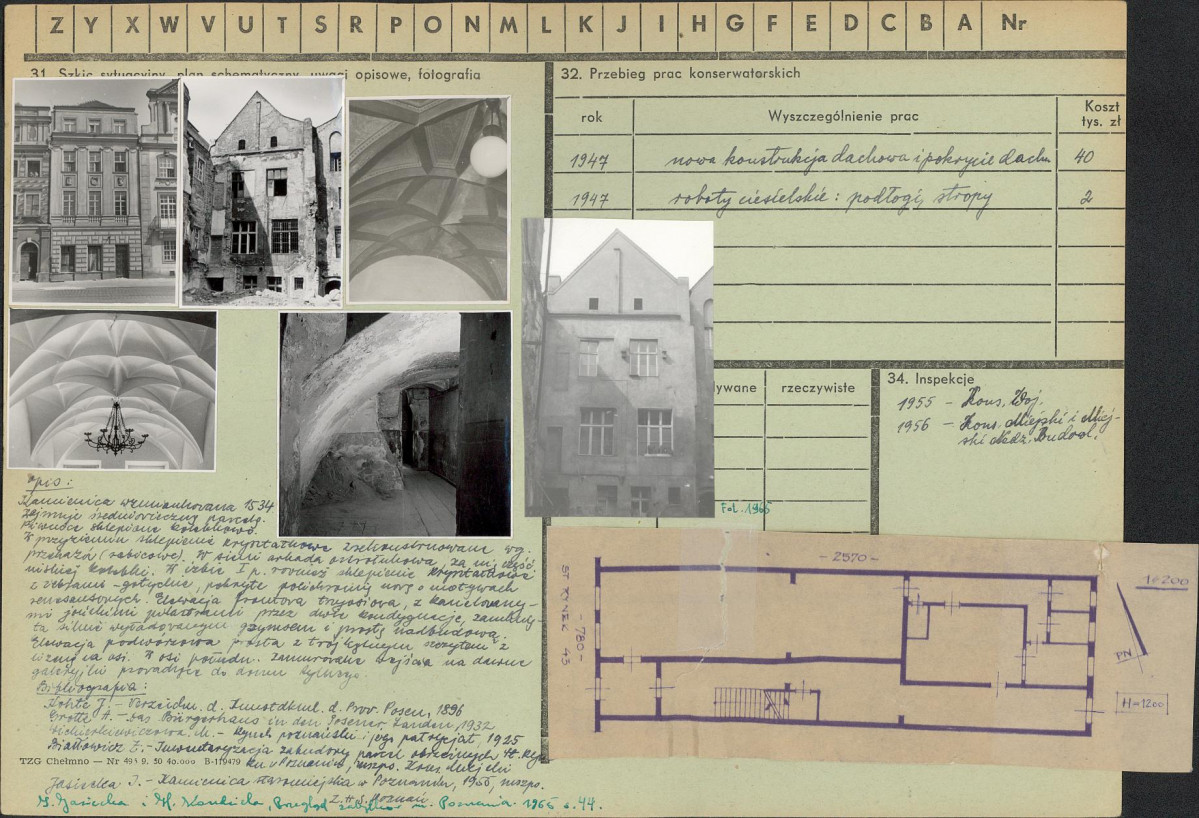 Z Y X W V U T S R P O N M L K J I H G F E D C B A Nr
31. Szkic sytuacyjny, plan schematyczny, uwagi opisowe, fotografia
32. Przebieg prac konserwatorskich
rok
Wyszczególnienie prac
Koszt
tys. zł
1947 nowa konstrukcja dachowa i pokrycie dachu 40
1947 roboty ciesielskie: podłogi, stropy 2
ywane
rzeczywiste
34. Inspekcje
1955 – Kons. Woj.
1956 – Kons. Miejski i Miej-
ski Nadz. Budowl.
Fot. 1965
Opis:
Kamienica wzmiankowana 1534
zajmuje średniowieczną parcelę.
Piwnice sklepione kolebkowo.
W przyziemiu sklepienie kryształkowe zrekonstruowane wg.
przekazów (rabicowe). W sieni arkada ostrołukowa, za nią część
niskiej kolebki. W izbie I p. również sklepienie kryształkowe
z żebrami – gotyckie, pokryte polichromią nową o motywach
renesansowych. Elewacja frontowa trzyosiowa, z kanelowany-
mi jońskimi pilastrami przez dwie kondygnacje, zamknię-
ta silnie wyładowanym gzymsem i prostą nadbudową.
Elewacja podwórzowa prosta z trójkątnym szczytem z
lizeną na osi. W osi połudn. zamurowane wejścia na dawne
galeryjki prowadzące do domu tylnego.
Bibliografia:
Kohte J. – Verzeichn. d. Kunstdkml. d. Prov. Posen, 1896
Grotte A. – Das Bürgerhaus in den Posener Landen, 1932
M. – Rynek poznański i jego patrycjat 1925
Białłowicz Z. – Inwentaryzacja zabudowy parcel obrzeżnych St. Ryn-
ku w Poznaniu, mszpo. Kons. Miejski
TZG Chełmno — Nr 495 9. 50 40.000 B-119479
Jasiecka I. – Kamienica staromiejska w Poznaniu, 1956, mszpo.
Z.A.P. Poznań
1965 s. 44.
– 2570 –
– 780 –
ST RYNEK 43
1:200
PN
H=1200